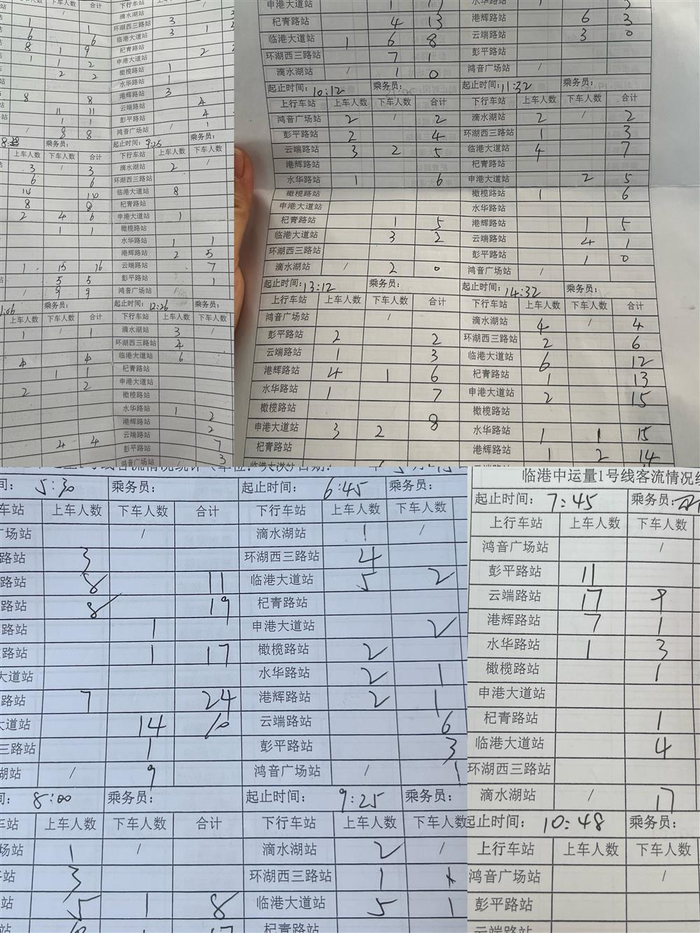 上车人数 下车人数 合计 下行车站 上车人数 下车人数
滴水湖站 3
环湖西三路站 3
临港大道站 1
杞青路站 2
申港大道站
橄榄路站 1
水华路站 1
港辉路站 3
云端路站 4
彭平路站
鸿音广场站 / 1
乘务员： 起止时间: 9:25 乘务员：
上车人数 下车人数 合计 下行车站 上车人数 下车人数
3 / 3 滴水湖站 2 /
6 6 环湖西三路站
临港大道站 8
8 8 杞青路站
2 4 6 申港大道站 1
1 1 橄榄路站
水华路站 1 1
港辉路站 2 5
15 16 云端路站 7
5 5 彭平路站 1
9 9 鸿音广场站 /
乘务员： 起止时间: 12:26 乘务员：
上车人数 下车人数 合计 下行车站 上车人数 下车人数
1 1 滴水湖站 3 /
环湖西三路站 4
4 4 临港大道站 6
1 1 杞青路站
2 2 申港大道站
橄榄路站
水华路站 1 2
港辉路站 2
4 4 云端路站 7
彭平路站 3
鸿音广场站
申港大道站
杞青路站 4 13
临港大道站 1 6 8
环湖西三路站 7 1
滴水湖站 / 1 0
水华路站
港辉路站 6 3
云端路站 3 0
彭平路站
鸿音广场站 /
起止时间: 10:12 乘务员： 起止时间: 11:32 乘务员：
上行车站 上车人数 下车人数 合计 下行车站 上车人数 下车人数 合计
鸿音广场站 2 / 2 滴水湖站 2 / 2
彭平路站 2 4 环湖西三路站 1 3
云端路站 3 2 5 临港大道站 4 7
港辉路站 杞青路站
水华路站 1 6 申港大道站 2 5
橄榄路站 橄榄路站 1 6
申港大道站 水华路站
杞青路站 1 5 港辉路站 1 5
临港大道站 3 2 云端路站 4 1
环湖西三路站 彭平路站 1 0
滴水湖站 / 2 0 鸿音广场站 /
起止时间: 13:12 乘务员： 起止时间: 14:32 乘务员：
上行车站 上车人数 下车人数 合计 下行车站 上车人数 下车人数 合计
鸿音广场站 / 滴水湖站 4 / 4
彭平路站 2 2 环湖西三路站 2 6
云端路站 1 3 临港大道站 6 12
港辉路站 4 1 6 杞青路站 1 13
水华路站 1 7 申港大道站 2 15
橄榄路站 8 橄榄路站
申港大道站 3 2 水华路站 1 1 15
杞青路站 港辉路站 1 2 14
间: 5:30 乘务员： 起止时间: 6:45 乘务员：
车站 上车人数 下车人数 合计 下行车站 上车人数 下车人数
广场站 / 滴水湖站 1 /
路站 3 环湖西三路站 4
路站 8 11 临港大道站 5 2
路站 8 19 杞青路站
路站 1 申港大道站 2
路站 1 17 橄榄路站 2
大道站 水华路站 2 1
路站 7 24 港辉路站 2 1
大道站 14 10 云端路站 6
三路站 1 彭平路站 3
湖站 / 9 鸿音广场站 / 1
间: 8:00 乘务员： 起止时间: 9:25 乘务员：
车站 上车人数 下车人数 合计 下行车站 上车人数 下车人数
场站 1 / 滴水湖站 2 /
站 3 环湖西三路站 1
站 5 1 8 临港大道站 5 1
杞青路站
临港中运量1号线客流情况统
起止时间: 7:45 乘务员：
上行车站 上车人数 下车人数
鸿音广场站 /
彭平路站 11
云端路站 17 9
港辉路站 7 1
水华路站 1 3
橄榄路站 1
申港大道站
杞青路站 1
临港大道站 4
环湖西三路站
滴水湖站 / 17
起止时间: 10:48 乘务员：
上行车站 上车人数 下车人数
鸿音广场站 /
彭平路站
云端路站